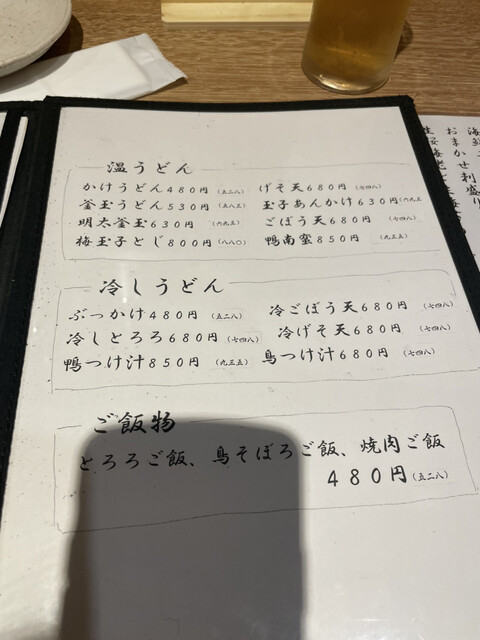 温うどん
かけうどん480円(五二八) げそ天680円(七四八)
釜玉うどん530円(五八三) 玉子あんかけ630円(六九三
明太釜玉630円(六九三) ごぼう天680円(七四八)
梅玉子とじ800円(八八〇) 鴨南蛮850円(九三五)
冷しうどん
ぶっかけ480円(五二八) 冷ごぼう天680円(七四八)
冷しとろろ680円(七四八) 冷げそ天680円(七四八)
鴨つけ汁850円(九三五) 鳥つけ汁680円(七四八)
ご飯物
とろろご飯、鳥そぼろご飯、焼肉ご飯
480円(五二八)
おまかせ刺盛り